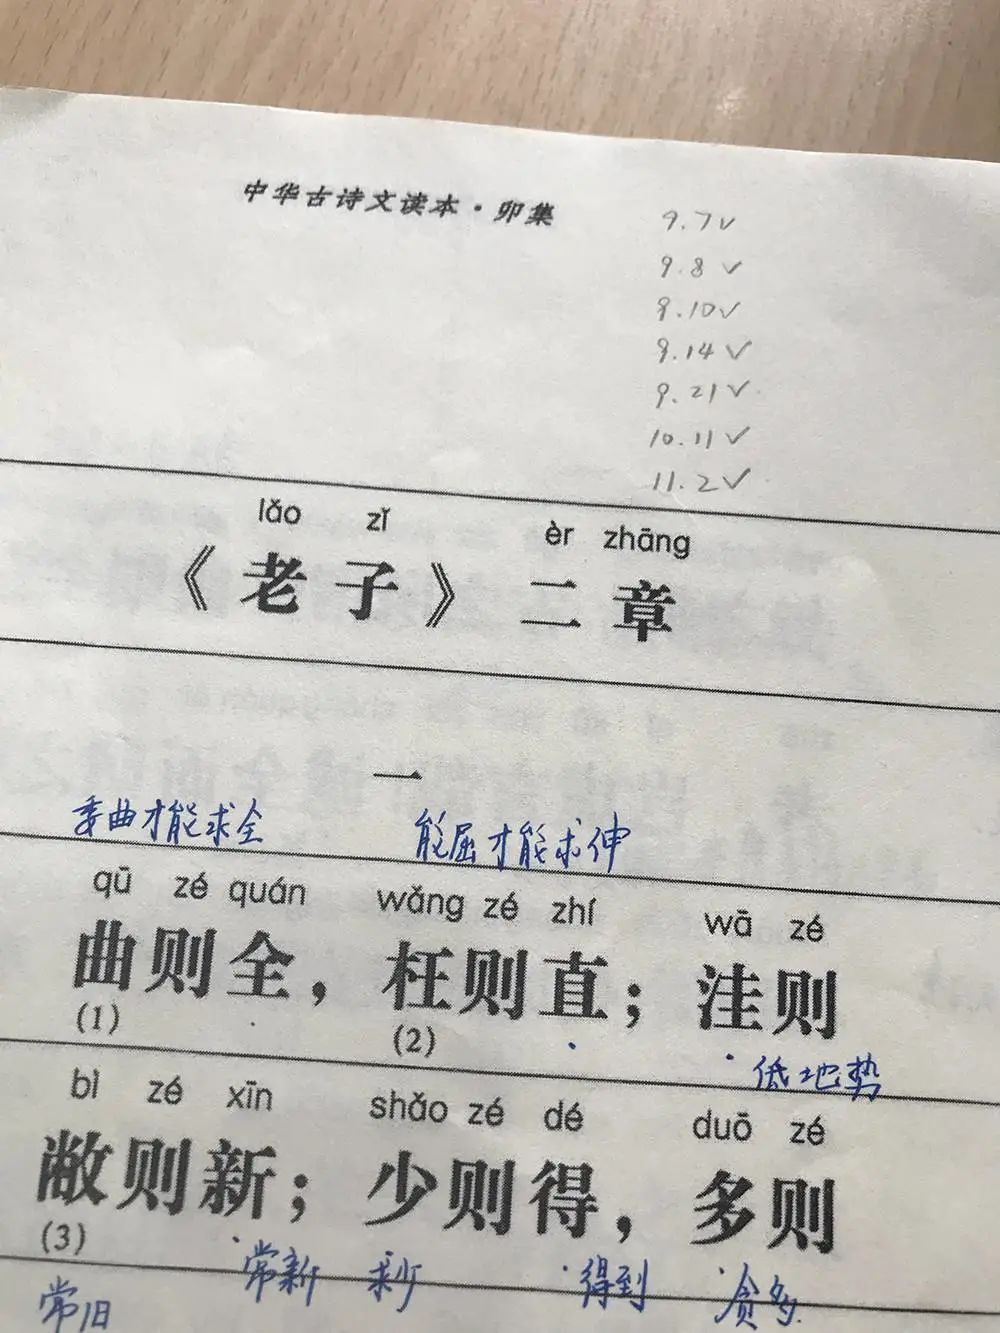 中华古诗文读本·卯集
9.7✓
9.8✓
9.10✓
9.14✓
9.21✓
10.11✓
11.2✓
lǎo zǐ èr zhāng
《老子》二章
一
委曲才能求全 能屈才能求伸
qū zé quán wǎng zé zhí wā zé
曲则全，枉则直；洼则
(1) (2)
低地势
bì zé xīn shǎo zé dé duō zé
敝则新；少则得，多则
(3)
常旧 常新 求少 得到 贪多